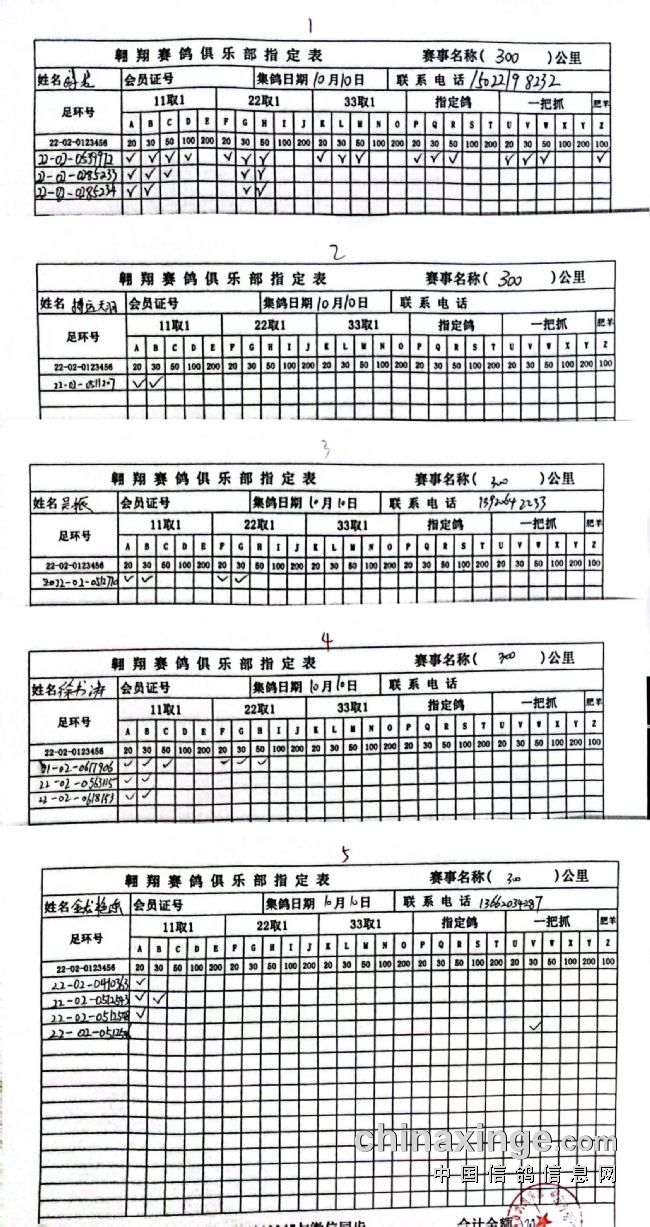 1
翱翔赛鸽俱乐部指定表 赛事名称( 300 )公里
姓名 会员证号 集鸽日期 10月10日 联系电话 15022198232
足环号 11取1 22取1 33取1 指定鸽 一把抓 肥羊
A B C D E F G H I J K L M N O P Q R S T U V W X Y Z
22-02-0123456 20 30 50 100 200 20 30 50 100 200 20 30 50 100 200 20 30 50 100 200 20 30 50 100 200 100
22-02-0539912 ✓ ✓ ✓ ✓ ✓ ✓ ✓ ✓ ✓ ✓ ✓ ✓ ✓ ✓ ✓ ✓ ✓
22-02-0285233 ✓ ✓ ✓ ✓ ✓
22-02-0285234 ✓ ✓ ✓ ✓
2
翱翔赛鸽俱乐部指定表 赛事名称( 300 )公里
姓名 会员证号 集鸽日期 10月10日 联系电话
足环号 11取1 22取1 33取1 指定鸽 一把抓 肥羊
A B C D E F G H I J K L M N O P Q R S T U V W X Y Z
22-02-0123456 20 30 50 100 200 20 30 50 100 200 20 30 50 100 200 20 30 50 100 200 20 30 50 100 200 100
22-02-0511207 ✓ ✓
3
翱翔赛鸽俱乐部指定表 赛事名称( 300 )公里
姓名 吴振 会员证号 集鸽日期 10月10日 联系电话 13920642233
足环号 11取1 22取1 33取1 指定鸽 一把抓 肥羊
A B C D E F G H I J K L M N O P Q R S T U V W X Y Z
22-02-0123456 20 30 50 100 200 20 30 50 100 200 20 30 50 100 200 20 30 50 100 200 20 30 50 100 200 100
2022-02-0512770 ✓ ✓ ✓ ✓
4
翱翔赛鸽俱乐部指定表 赛事名称( 300 )公里
姓名 徐书涛 会员证号 集鸽日期 10月10日 联系电话
足环号 11取1 22取1 33取1 指定鸽 一把抓 肥羊
A B C D E F G H I J K L M N O P Q R S T U V W X Y Z
22-02-0123456 20 30 50 100 200 20 30 50 100 200 20 30 50 100 200 20 30 50 100 200 20 30 50 100 200 100
21-02-0617906 ✓ ✓ ✓ ✓ ✓ ✓
22-02-0563115 ✓ ✓
22-02-0618153 ✓ ✓
5
翱翔赛鸽俱乐部指定表 赛事名称( 300 )公里
姓名 会员证号 集鸽日期 10月10日 联系电话 13662034287
足环号 11取1 22取1 33取1 指定鸽 一把抓 肥羊
A B C D E F G H I J K L M N O P Q R S T U V W X Y Z
22-02-0123456 20 30 50 100 200 20 30 50 100 200 20 30 50 100 200 20 30 50 100 200 20 30 50 100 200 100
22-02-0410363 ✓
22-02-0512543 ✓ ✓
22-02-0512548 ✓
✓
chinaxinge.com
中国信鸽信息网
微信同步 合计金额